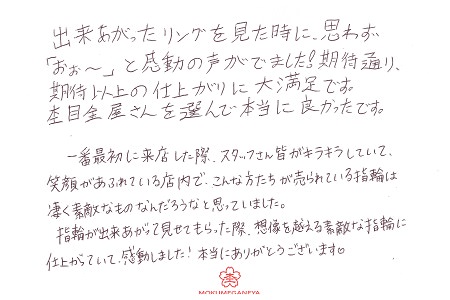 出来あがったリングを見た時に、思わず
「おぉ～」と感動の声がでました!期待通り、
期待以上の仕上がりに大満足です。
杢目金屋さんを選んで本当に良かったです。
一番最初に来店した際、スタッフさん皆がキラキラしていて、
笑顔があふれている店内で、こんな方たちが売られている指輪は
凄く素敵なものなんだろうなと思っていました。
指輪が出来あがって見せてもらった際、想像を越える素敵な指輪に
仕上がっていて、感動しました!本当にありがとうございます♡
MOKUMEGANEYA